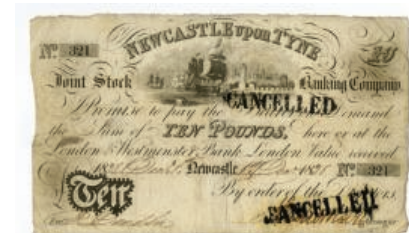 NEWCASTLE upon TYNE
Nº 321 10
Joint Stock Banking Company
I Promise to pay the Demand
CANCELLED
the Sum of TEN POUNDS, here or at the
London & Westminster Bank London Value received
Newcastle Nº 321
Ten
By order of the Directors,
CANCELLED